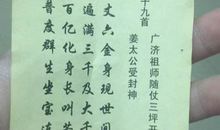 十九首
广济祖师随仗三坪开
姜太公受封神
丈六金身现世间
遍满三千及大千
百亿化身长叫苦
普度群生坐宝莲